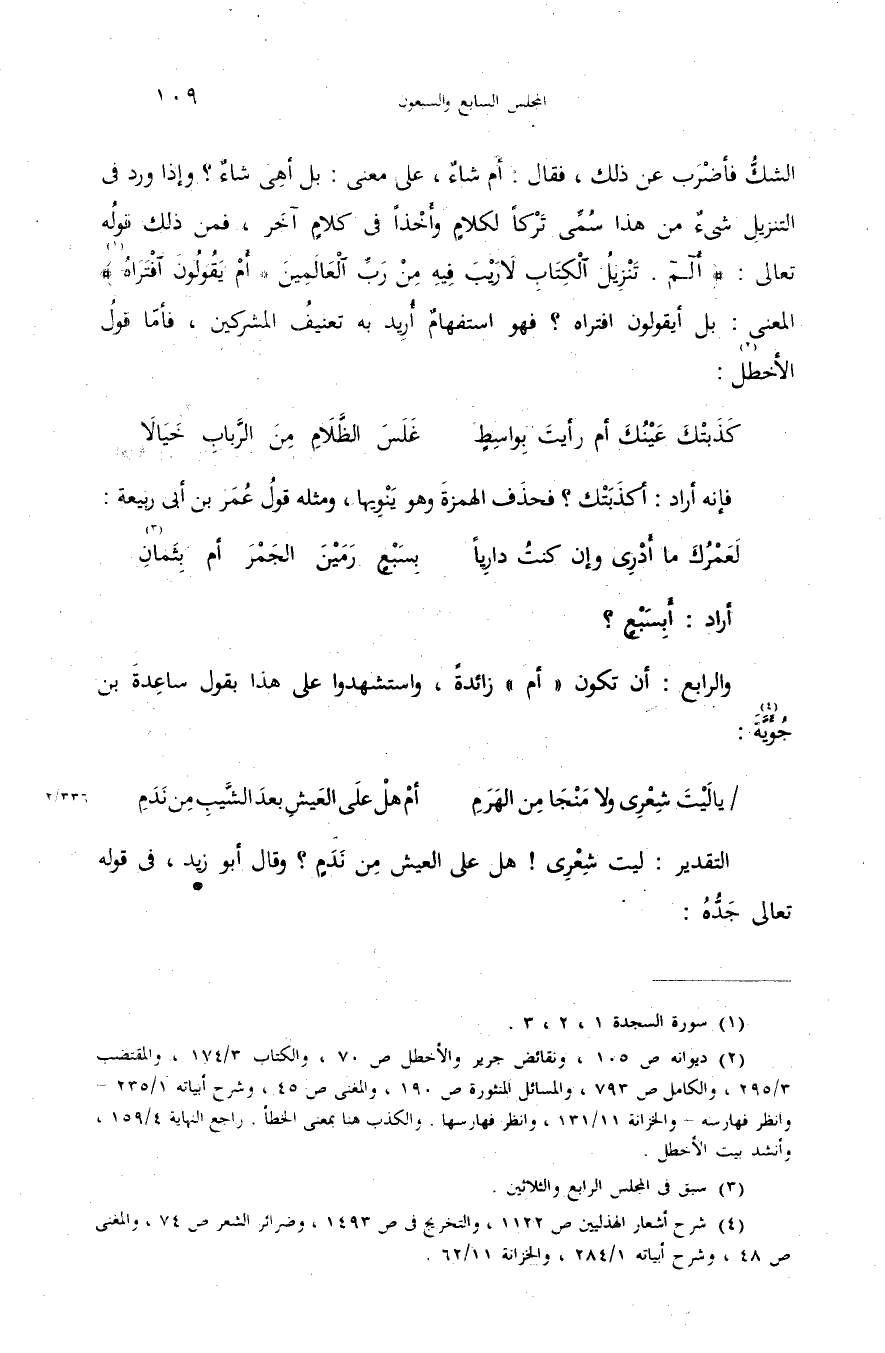 المجلس السابع والسبعون ١٠٩
الشكُّ فأضْرَب عن ذلك ، فقال : أم شاءٌ ، على معنى : بل أهِى شاءٌ ؟ وإذا ورد فى
التنزيلِ شىءٌ من هذا سُمِّى تَرْكاً لكلامٍ وأَخْذاً فى كلامٍ آخَر ، فمن ذلك قولُه
تعالى : ﴿ أَلٓـمٓ . تَنْزِيلُ ٱلْكِتَابِ لَارَيْبَ فِيهِ مِنْ رَبِّ ٱلْعَالَمِينَ * أَمْ يَقُولُونَ ٱفْتَرَاهُ ﴾(١)
المعنى : بل أيقولون افتراه ؟ فهو استفهامٌ أُريد به تعنيفُ المشركين ، فأمّا قولُ
الأخطل(٢) :
كَذَبتْكَ عَيْنُكَ أم رأيتَ بِواسِطٍ غَلَسَ الظَّلَامِ مِنَ الرَّبابِ خَيَالَا
فإنه أراد : أكذَبَتْك ؟ فحذَف الهمزةَ وهو يَنْوِيها ، ومثله قولُ عُمَر بن أبى ربيعة :
لَعَمْرُكَ ما أَدْرِى وإن كنتُ دارِياً بِسَبْعٍ رَمَيْنَ الجَمْرَ أم بِثَمانِ(٣)
أراد : أَبِسَبْعٍ ؟
والرابع : أن تكون « أم » زائدةً ، واستشهدوا على هذا بقول ساعِدةَ بن
جُوَيَّةَ(٤) :
/ يالَيْتَ شِعْرِى ولا مَنْجَا مِن الهَرَمِ أمْ هلْ علَى العَيشِ بعدَ الشَّيبِ مِن نَدَمِ ٢/٣٣٦
التقدير : ليت شِعْرِى ! هل على العيش مِن نَدَمٍ ؟ وقال أبو زيد ، فى قوله
تعالى جَدُّهُ :
(١) سورة السجدة ١ ، ٢ ، ٣ .
(٢) ديوانه ص ١٠٥ ، ونقائض جرير والأخطل ص ٧٠ ، والكتاب ١٧٤/٣ ، والمقتضب
٢٩٥/٣ ، والكامل ص ٧٩٣ ، والمسائل المنثورة ص ١٩٠ ، والمغنى ص ٤٥ ، وشرح أبياته ٢٣٥/١ –
وانظر فهارسه – والخزانة ١٣١/١١ ، وانظر فهارسها . والكذب هنا بمعنى الخطأ . راجع النهاية ١٥٩/٤ ،
وأنشد بيت الأخطل .
(٣) سبق فى المجلس الرابع والثلاثين .
(٤) شرح أشعار الهذليين ص ١١٢٢ ، والتخريج فى ص ١٤٩٣ ، وضرائر الشعر ص ٧٤ ، والمغنى
ص ٤٨ ، وشرح أبياته ٢٨٤/١ ، والخزانة ٦٢/١١ .